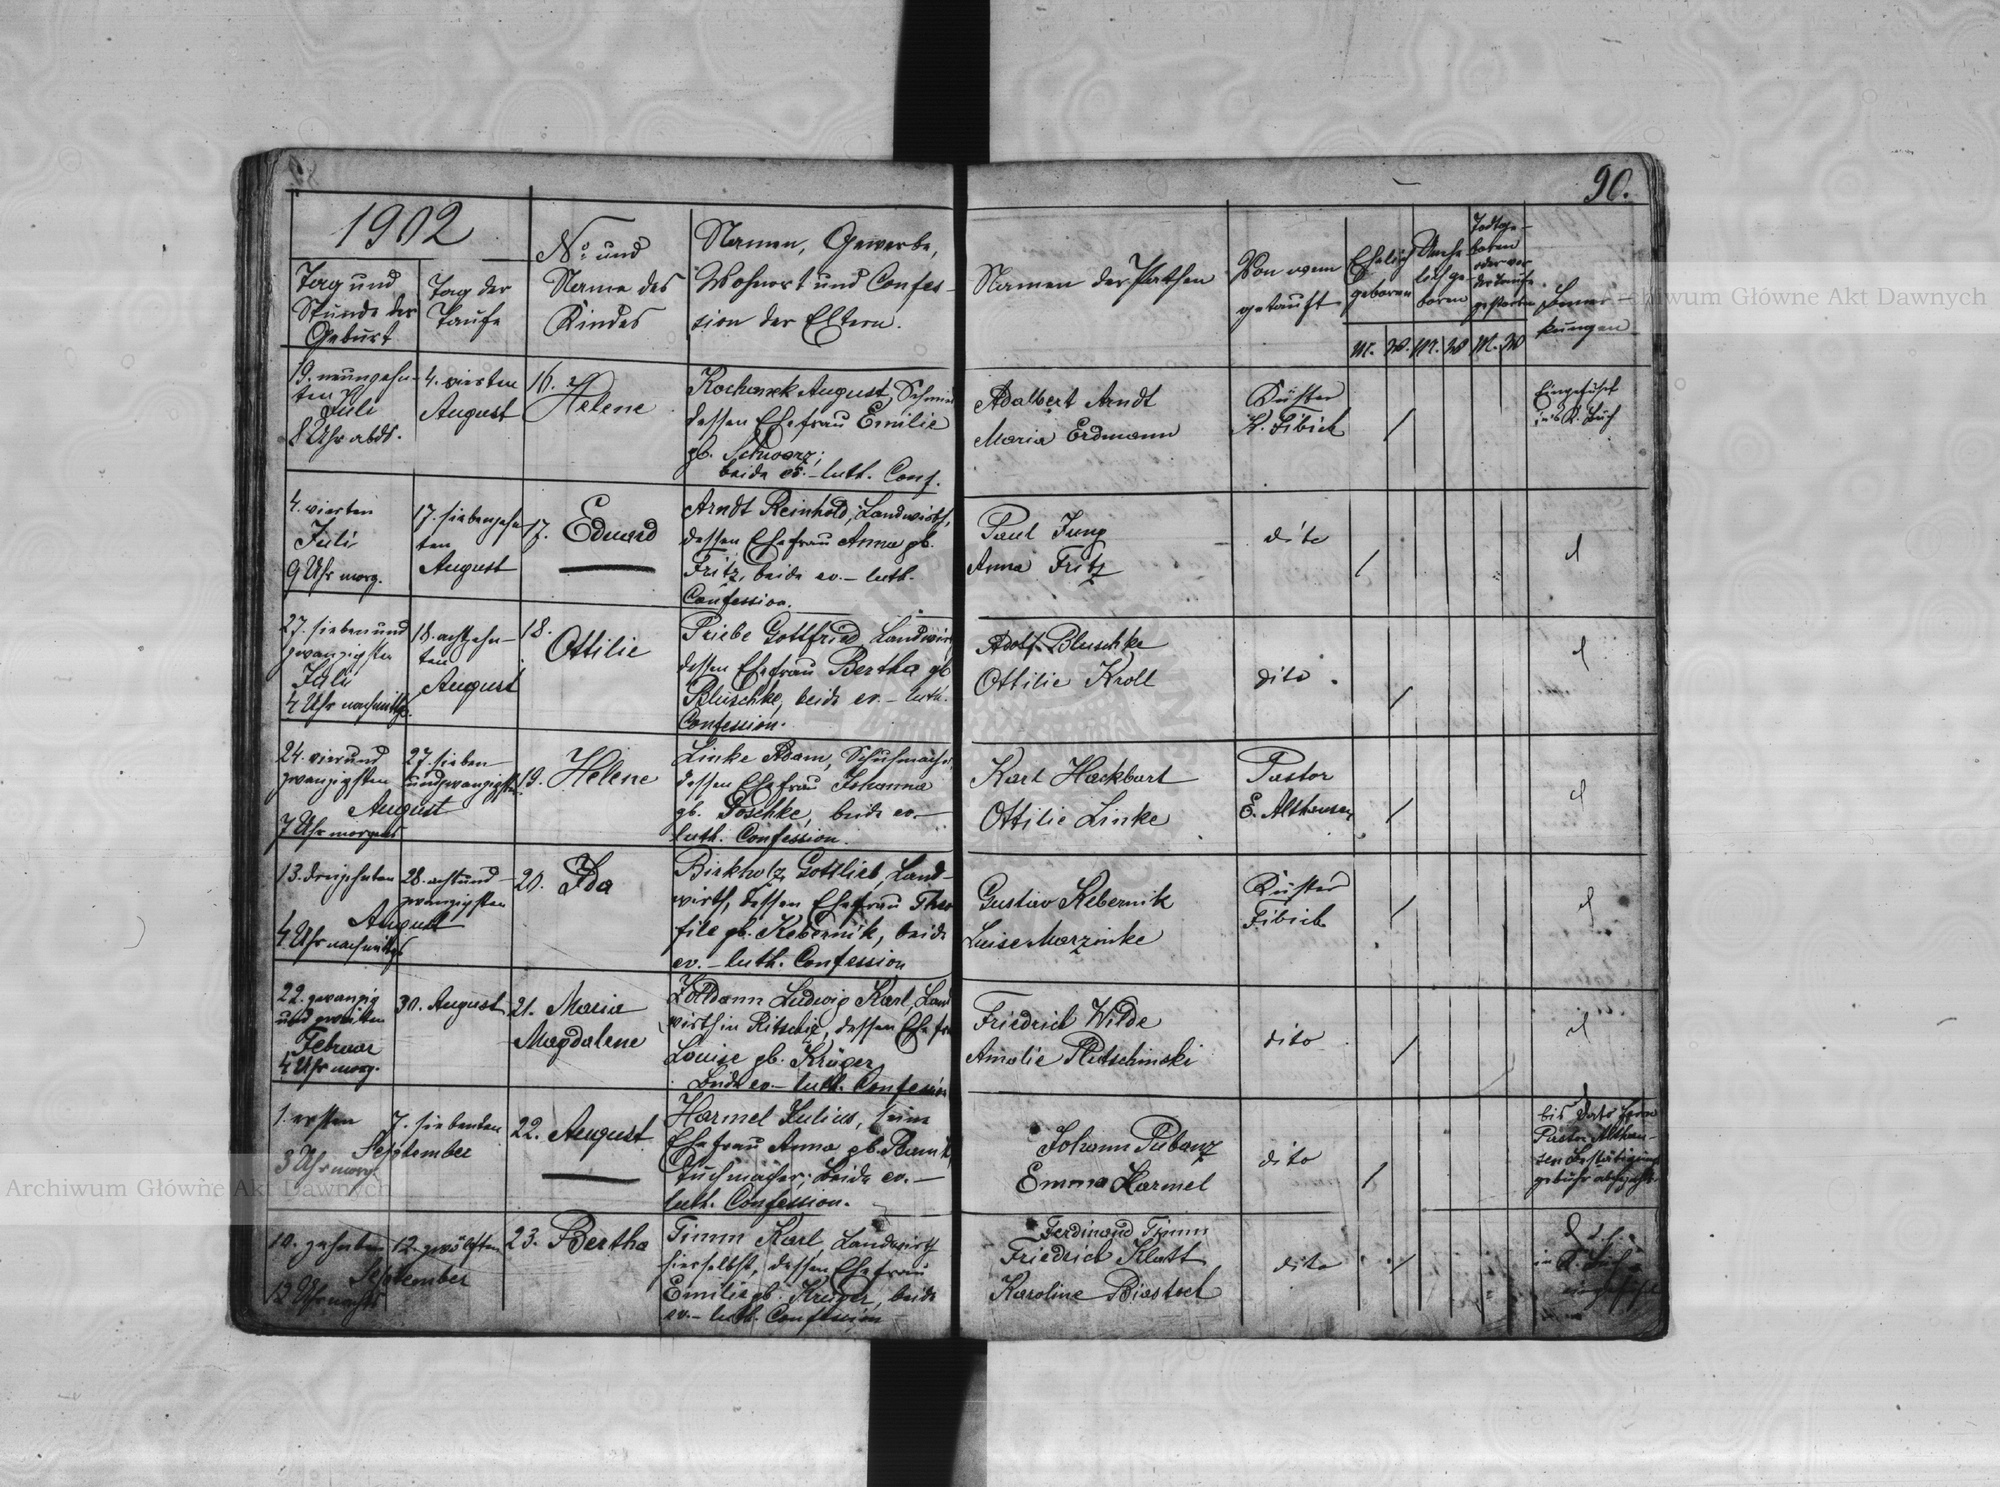 90.
1902
Tag und
Stunde der
Geburt
Tag der
Taufe
No. und
Name des
Kindes
Namen, Gewerbe,
Wohnort und Confes-
sion der Eltern.
Namen der Pathen
Von wem
getauft
Ehelich
geboren
Unehe-
lich ge-
boren
Todtge-
boren
oder vor
der Taufe
gestorben
Bemer-
kungen
M. W. M. W M. W
19. neunzehn-
ten
Juli
8 Uhr abds.
4. vierten
August
16.
Helene
August, Schmied
dessen Ehefrau Emilie
gb. Schwarz;
beide ev.-luth. Conf.
Adalbert Arndt
Maria Erdmann
Küster
K. Fibich
Eingetragen
ins K. Buch
4. vierten
Juli
9 Uhr morg.
17. siebenzehn
ten
August
17. Eduard
Arndt Reinhold, Landwirth,
dessen Ehefrau Anna gb.
Fritz, beide ev.-luth.
Confession.
Paul Jung
Anna Fritz
dito
27. siebenund
zwanzigsten
Juli
4 Uhr nachmittgs.
18. achtzehn-
ten
August
18.
Ottilie
Priebe Gottfried Landwirt
dessen Ehefrau Bertha gb
Bluschke, beide ev.-luth.
Confession.
Adolf Bluschke
Ottilie Kroll
dito
24. vierund
zwanzigsten
27. sieben-
undzwanzigsten
August
7 Uhr morgens
19. Helene
Linke Adam, Schuhmacher
dessen Ehefrau Johanna
gb. Poschke, beide ev.-
luth. Confession.
Karl Hackbart
Ottilie Linke
Pastor
E. Althausen
13. dreizehnten
28. achtund-
zwanzigsten
August
4 Uhr nachmittgs
20. Ida
Birkholz Gottlieb, Land-
wirth, dessen Ehefrau Theo
file gb. Kebernik, beide
ev.-luth. Confession
Gustav Kebernik
Luise Marzinke
Küster
Fibich
22. zwanzig
und zweiten
Februar
4 Uhr morg.
30. August
21. Maria
Magdalene
Ludwig Karl, Land
wirth in Ritschitz, dessen Ehefr
Louise gb. Krüger
beide ev-luth. Confession
Friedrich Wilde
Amalie
dito
1. ersten
7. siebenten
September
3 Uhr morg.
22. August
Harmel Julius, seine
Ehefrau Anna gb.
Tuchmacher; beide ev.-
luth. Confession.
Johann Pubanz
Emma Harmel
dito
bis dato Herrn
Pastor Althau-
sen Bestätigungs
gebühr
10. zehnten
12. zwölften
September
12 Uhr nachts
23. Bertha
Timm Karl, Landwirth
hierselbst, dessen Ehefrau
Emilie gb. Krüger, beide
ev.-luth. Confession
Ferdinand Timm
Friedrich Klatt
Karoline Biastoch
dito
in K. Buch
Archiwum Główne Akt Dawnych
Archiwum Główne Akt Dawnych